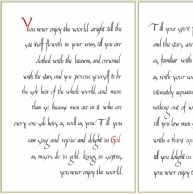 You never enjoy the world aright till the
sea itself floweth in your veins, till you are
clothed with the heavens, and crowned
with the stars, and perceive yourself to be
the sole heir of the whole world, and more
than so because men are in it who are
every one sole heirs, as well as you. Till you
can sing and rejoice and delight in God
as misers do in gold, kings in sceptres,
you never enjoy the world.
Till your spirit
and the stars are
as familiar with
as with your
intimately
nothing out of
till you love men
with a thirst
till you delight
you never enjoy